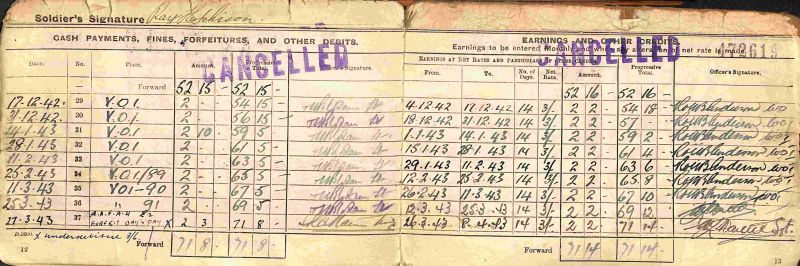 Soldier's Signature Ray Hutchison.
CASH PAYMENTS, FINES, FORFEITURES, AND OTHER DEBITS.
CANCELLED
Date. No. Place. Amount. Progressive Total. Officer's Signature.
Forward 52 15 - 52 15 -
17.12.42. 29 V.O.1. 2 - - 54 15 -
31.12.42. 30 V.O.1. 2 - - 56 15 -
14.1.43 31 V.O.1 2 10 - 59 5 -
28.1.43 32 V.O.1. 2 - - 61 5 -
11.2.43 33 V.O.1 2 - - 63 5 -
25.2.43 34 V.O.1/89 2 - - 65 5 -
11.3.43 35 VO1-90 2 - - 67 5 -
25.3.43 36 " 91 2 - - 69 5 -
27.3.43 37 FORFEIT DAY'S PAY X 2 3 - 71 8 -
X
Forward 71 8 - 71 8 -
12
EARNINGS AND OTHER CREDITS.
Earnings to be entered Monthly or when any alteration of net rate is made.
CANCELLED
472619
EARNINGS AT NET RATES AND PARTICULARS OF OTHER CREDITS
From. To. No. of Days. Net Rate. Amount. Progressive Total. Officer's Signature.
52 16 - 52 16 -
4.12.42 17.12.42 14 3/- 2 2 - 54 18 - Anderson WO1
18.12.42 31.12.42 14 3/- 2 2 - 57 - - Anderson WO1
1.1.43 14.1.43 14 3/- 2 2 - 59 2 - Anderson WO1
15.1.43 28.1.43 14 3/- 2 2 - 61 4 - Anderson WO1
29.1.43 11.2.43 14 3/- 2 2 - 63 6 - Anderson WO1
12.2.43 25.2.43 14 3/- 2 2 - 65 8 - Anderson WO1
26.2.43 11.3.43 14 3/- 2 2 - 67 10 - Anderson WO1
12.3.43 25.3.43 14 3/- 2 2 - 69 12 -
26.3.43 8.4.43 14 3/- 2 2 - 71 14 - Sgt.
Forward 71 14 - 71 14 -
13